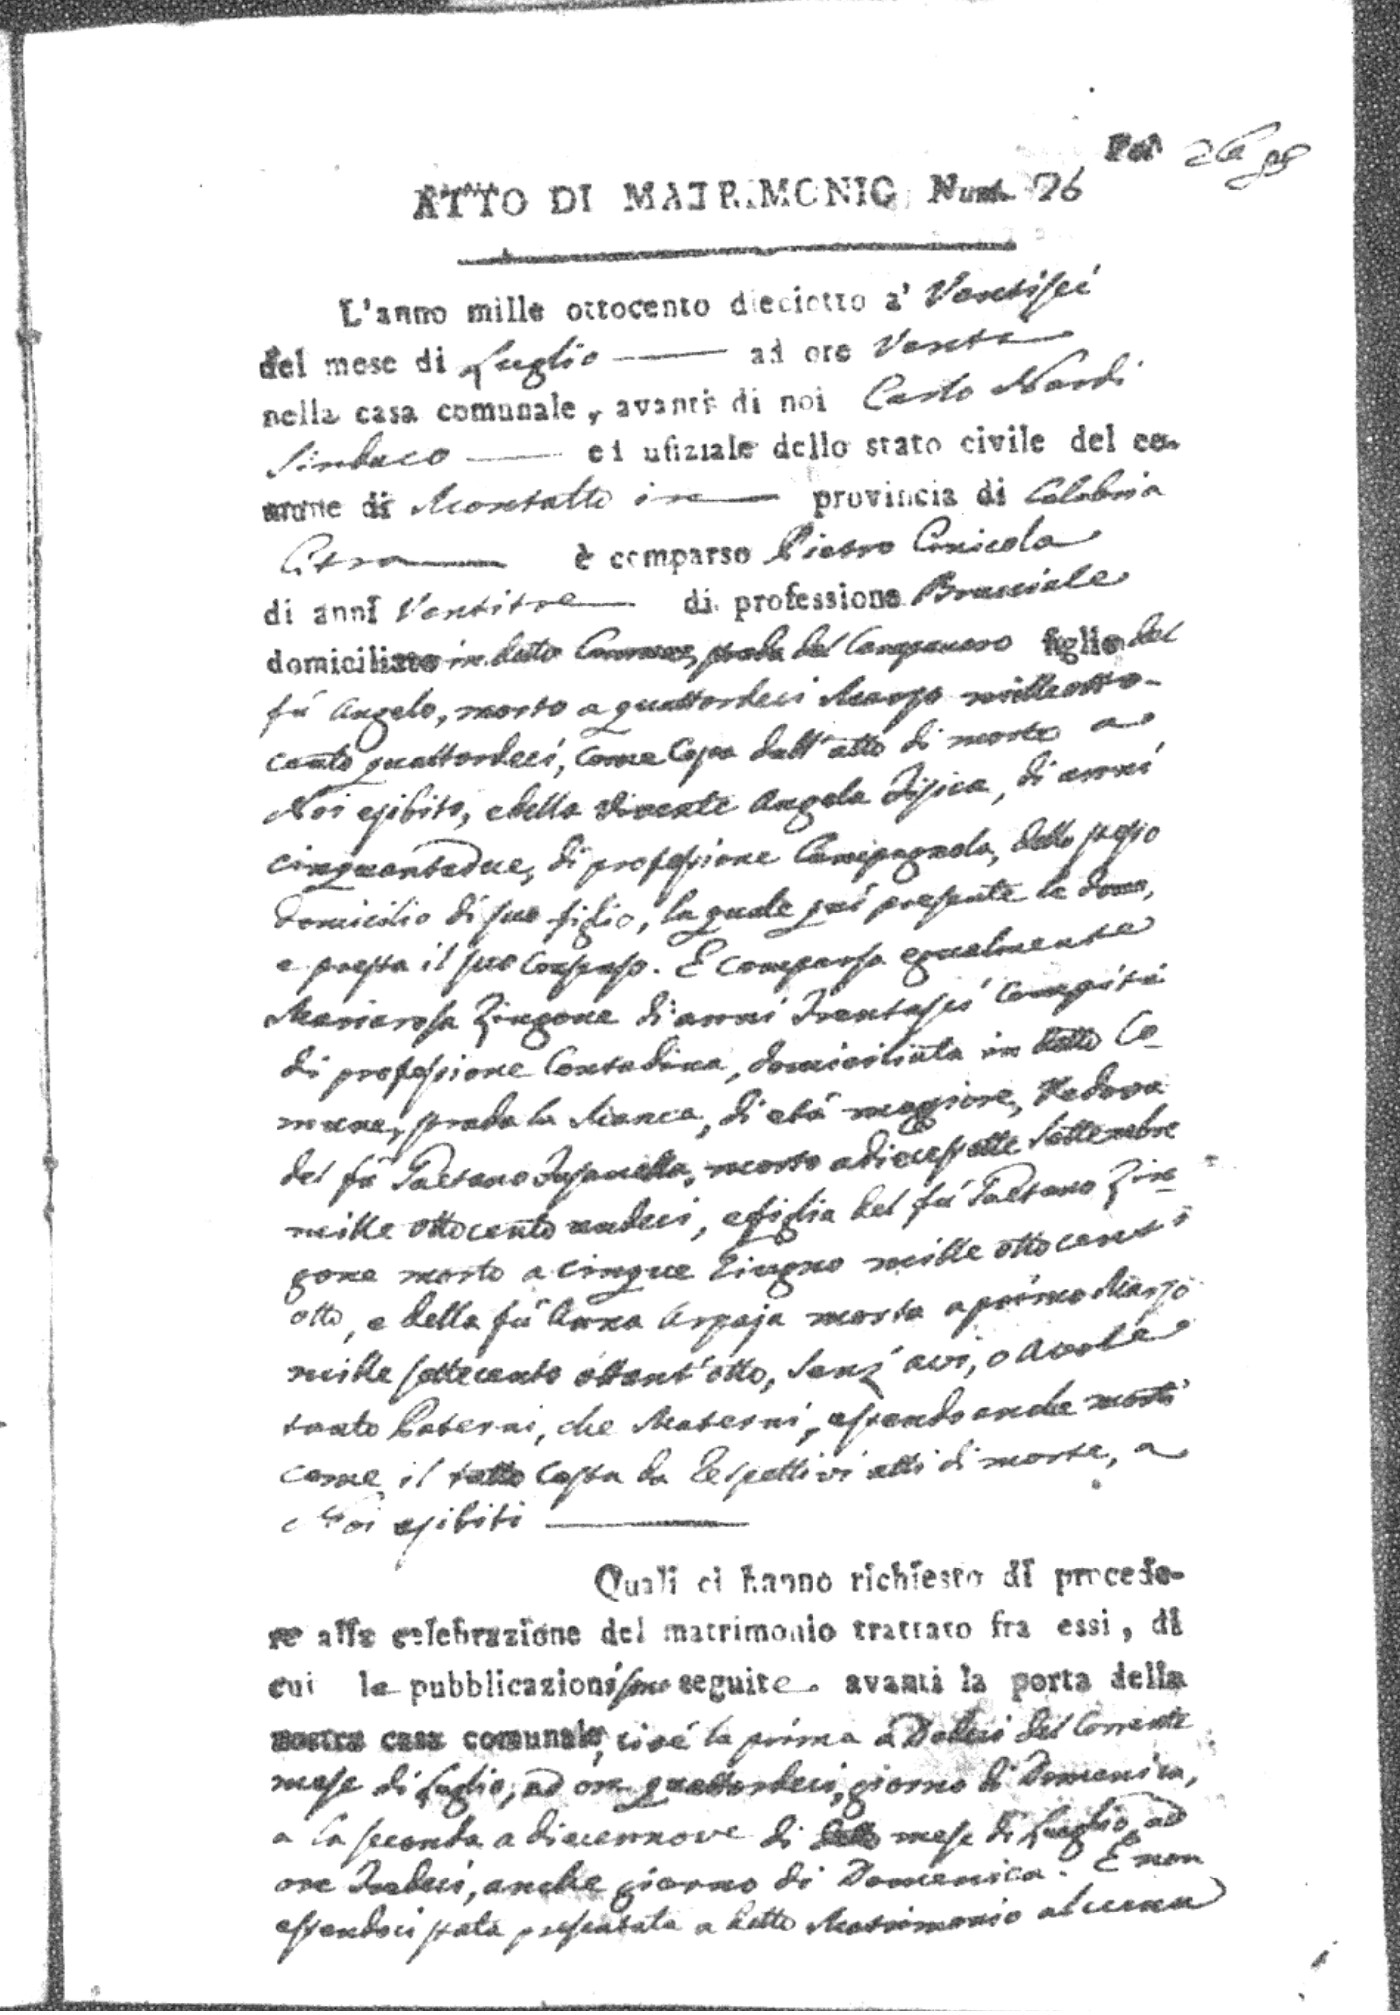 ATTO DI MATRIMONIO Num. 76
L'anno mille ottocento dieciotto a' Ventisei
del mese di Luglio ad ore Venti
nella casa comunale, avanti di noi Carlo Nardi
Sindaco ed ufiziale dello stato civile del co-
mune di Montalto in provincia di Calabria
Citra è comparso Pietro Cunicola
di anni Ventitre di professione Bracciale
domiciliato in detto Comune, strada del Campanaro figlio del
fù Angelo, morto a quattordeci Marzo milleotto-
cento quattordeci, come Copa dall'atto di morte a
Noi esibito, e della vivente Angela Fisica, di anni
cinquantadue, di professione Campagnola, dello stesso
domicilio di suo figlio, la quale quì presente le dona,
e presta il suo Consenso. È comparsa egualmente
Mariarosa Zingone di anni Trentasei compiti
di professione Contadina, domiciliata in detto Co-
mune, strada la Manca, di età maggiore, Vedova
del fù Gaetano, morto a diecessette Settembre
mille ottocento undeci, e figlia del fù Gaetano Zin-
gone morto a cinque Giugno mille ottocento
otto, e della fù Anna Arpaja morta a primo Marzo
mille settecento ottant'otto, senz'avi, o avole
tanto Paterni, che Materni, essendo anche morti
come il tutto costa da respettivi atti di morte, a
Noi esibiti
Quali ci hanno richiesto di procede-
re alla celebrazione del matrimonio trattato fra essi, di
cui le pubblicazioni sono seguite avanti la porta della
nostra casa comunale, cioé la prima a Dodeci del Corrente
mese di Luglio, ad ore quattordeci, giorno di Domenica,
e la seconda a diecennove di detto mese di Luglio ad
ore Tredeci, anche giorno di Domenica. E non
essendoci stata presentata a detto Matrimonio alcuna